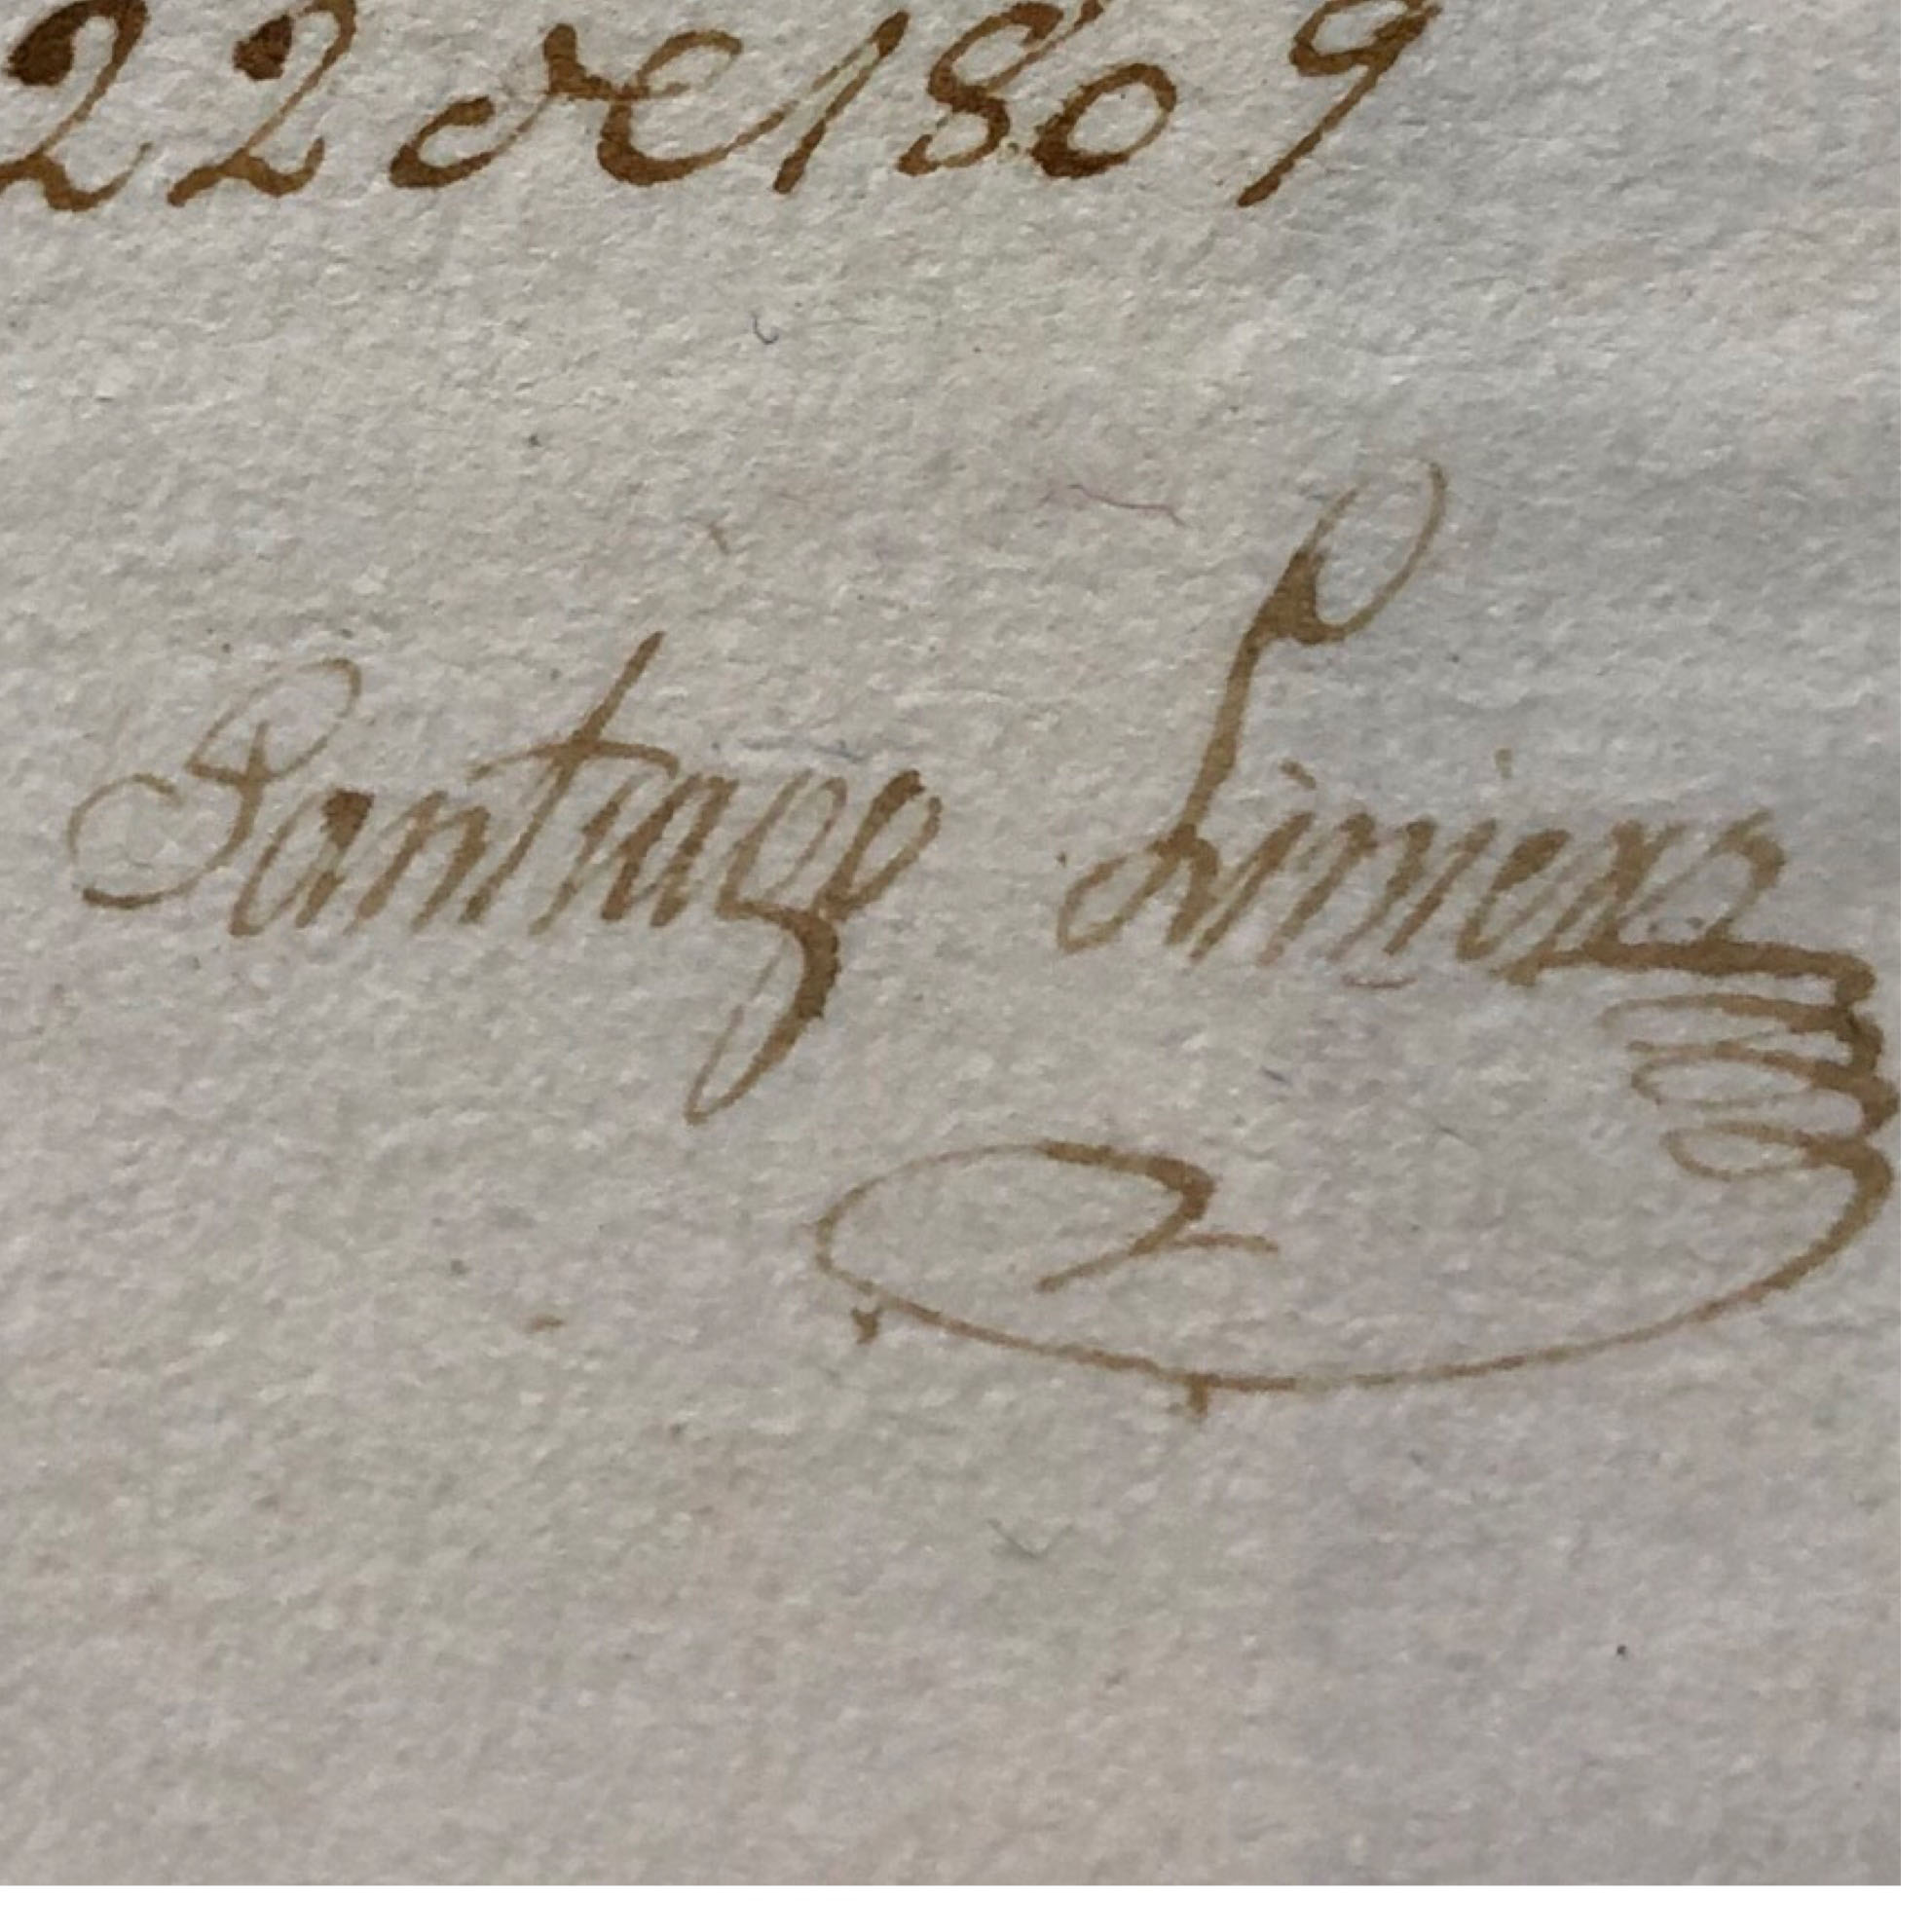 22 de 1809
Santiago Liniers